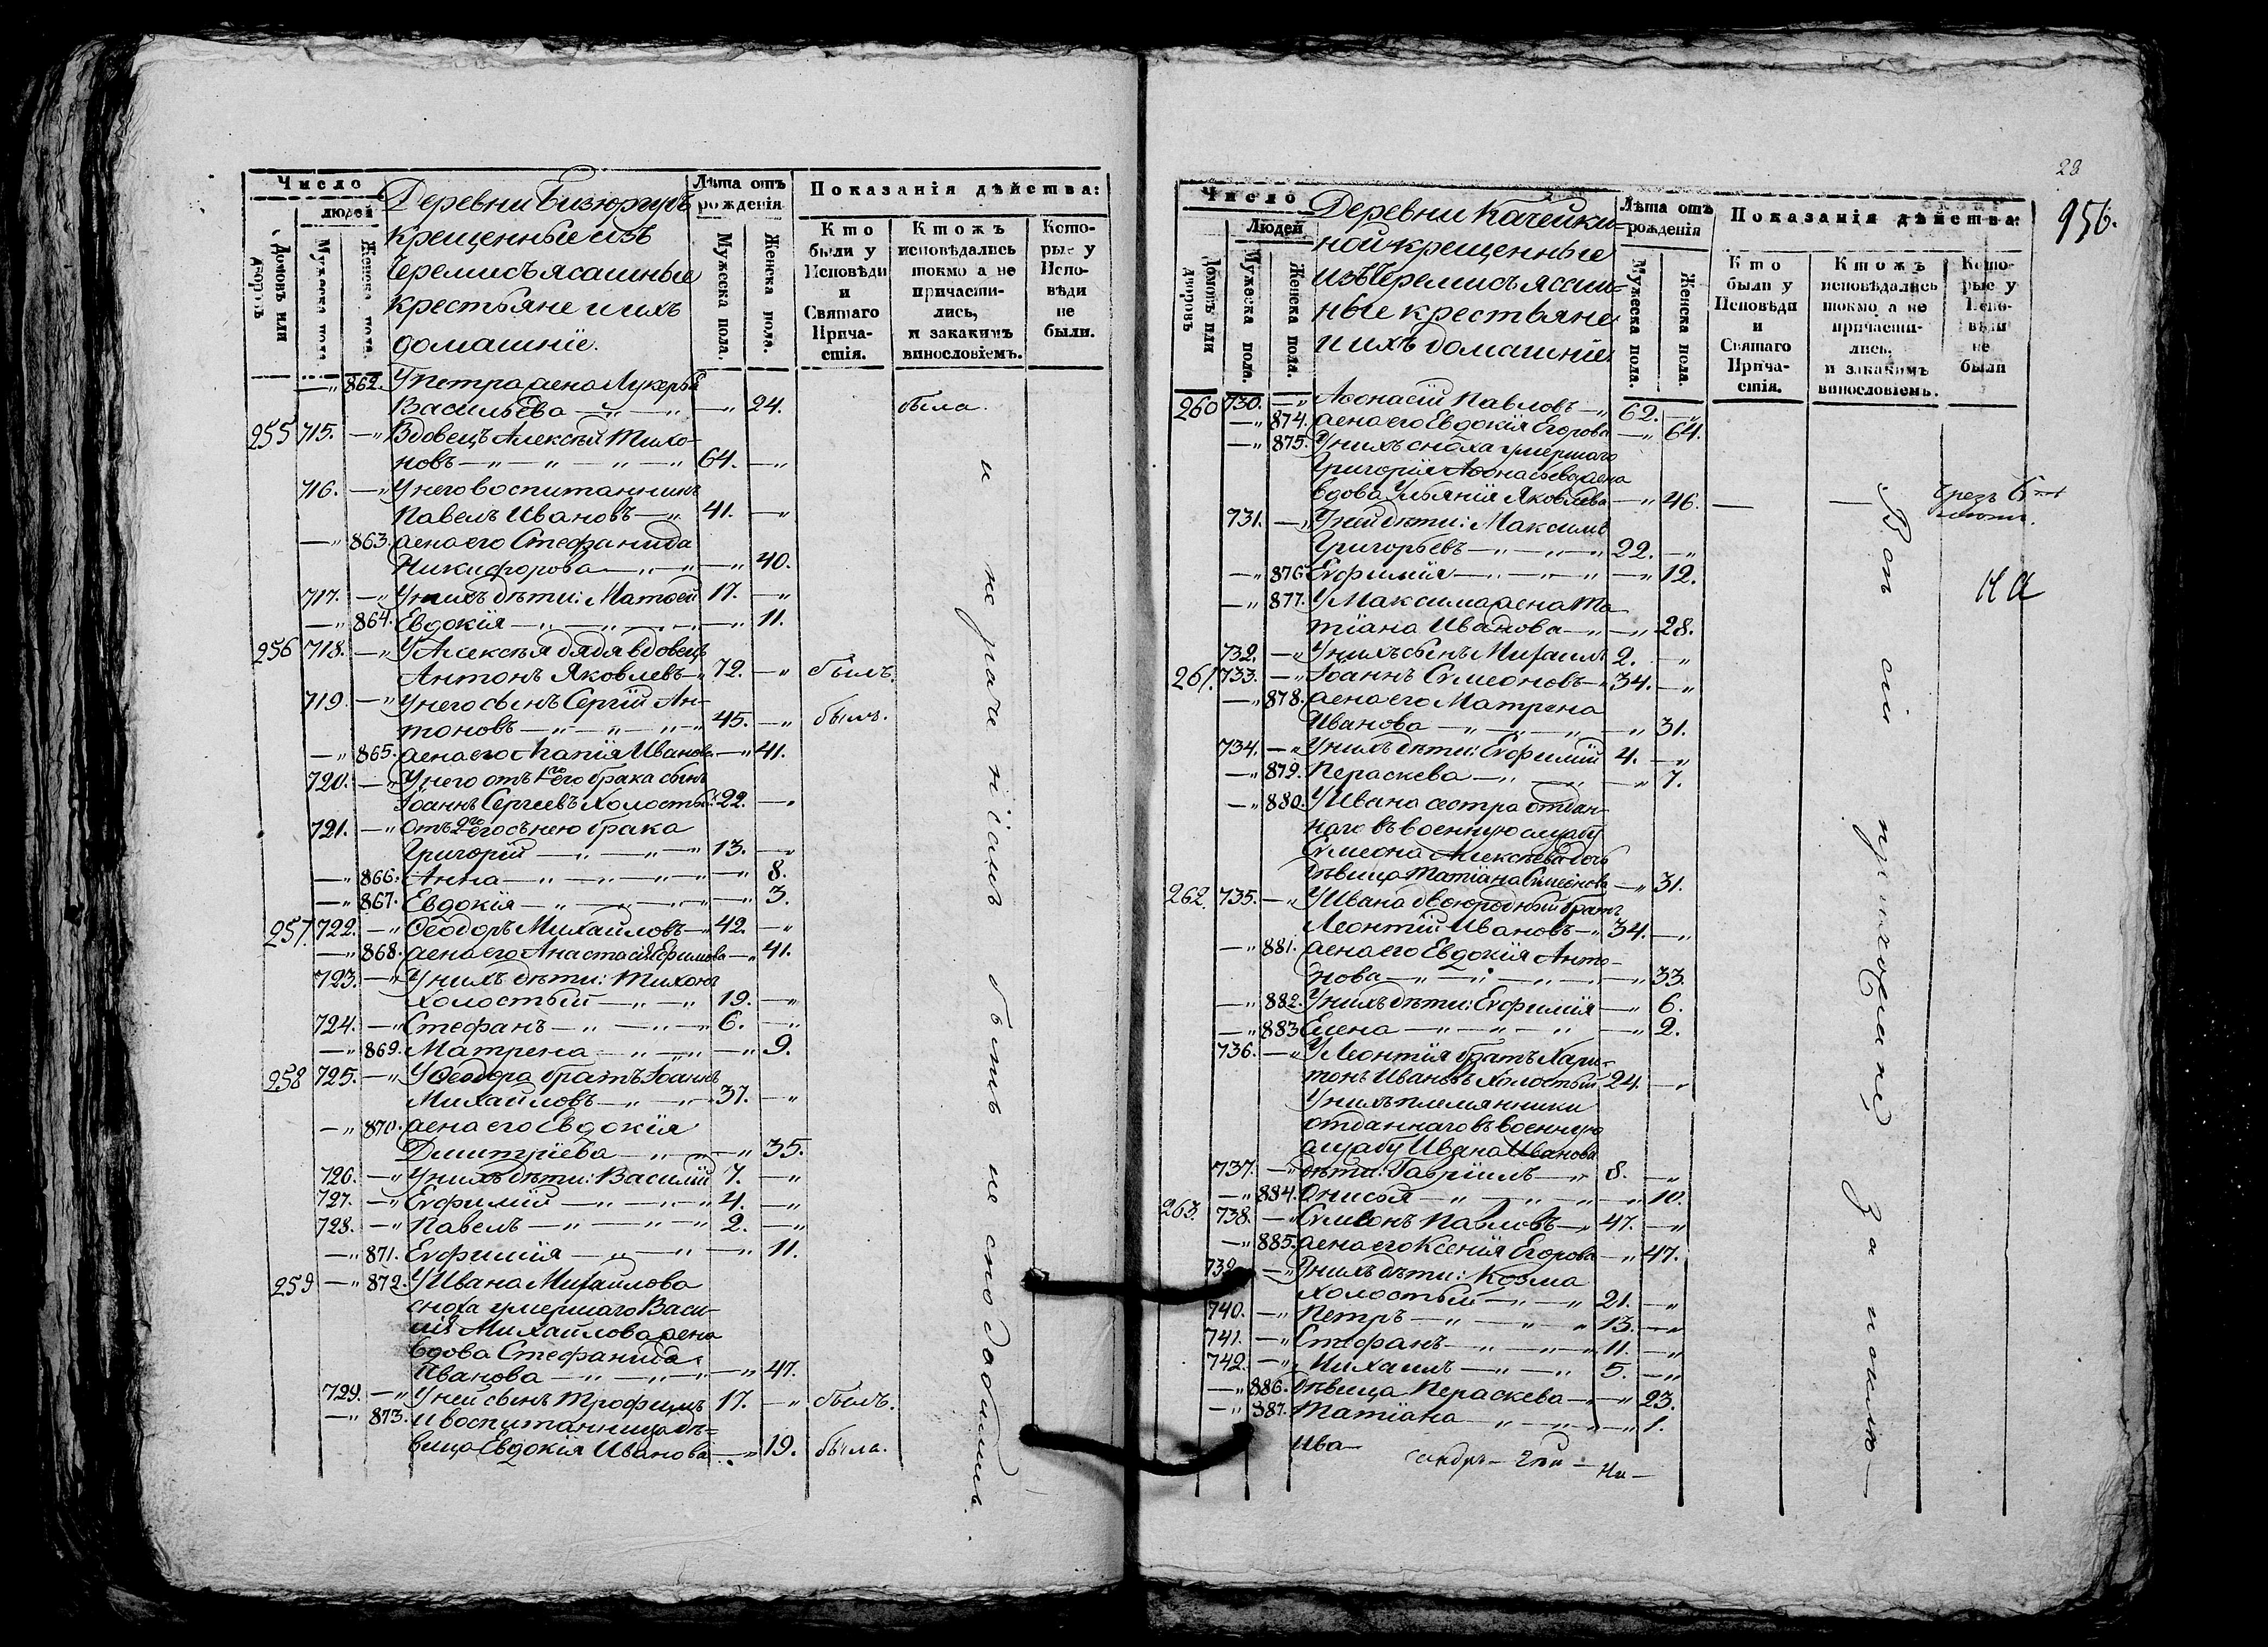 Число
людей
Домовъ или дворовъ
Мужеска пола
Женска пола.
Деревни Бизюргупъ
крещенныя изъ
Черемисъ ясашныя
крестьяне и ихъ
домашніе.
Лѣта отъ рожденія
Мужеска пола.
Женска пола.
Показанія дѣйства:
Кто были у Исповѣди и Святаго Причастія.
Ктожъ исповѣдались токмо а не причастились, и закакимъ винословіемъ.
Которые у Исповѣди не были.
—„ 862. У Петра жена Лукерья
Васильева —„ —„ —„ 24. была.
255 715. —„ Вдовецъ Алексѣй Тихо-
новъ —„ —„ —„ —„ 64. —„
716. —„ У него воспитанникъ
Павелъ Ивановъ —„ 41. —„
—„ 863. жена его Стефанида
Никифорова —„ —„ —„ 40.
717. —„ У нихъ дѣти: Матѳей 17. —„
—„ 864. Евдокія —„ —„ —„ —„ 11.
256 718. —„ У Алексѣя дядя вдовецъ
Антонъ Яковлевъ —„ 72. —„ былъ.
719. —„ У него сынъ Сергій Ан-
тоновъ —„ —„ —„ 45. —„ былъ.
—„ 865. жена его Агапія Иванова —„ 41.
720. —„ У него отъ 1го его брака сынъ
Іоаннъ Сергеевъ Холостый: 22. —„
721. —„ Отъ 2го его съ нею брака
Григорій —„ —„ —„ 13. —„
—„ 866. Анна —„ —„ —„ —„ 8.
—„ 867. Евдокія —„ —„ —„ —„ 3.
257. 722. —„ Ѳеодоръ Михайловъ —„ 42. —„
—„ 868. жена его Анастасія Ефимова —„ 41.
723. —„ У нихъ дѣти: Тихонъ
Холостый —„ —„ 19. —„
724. —„ Стефанъ —„ —„ —„ 6. —„
—„ 869. Матрена —„ —„ —„ 9.
258 725. —„ У Ѳеодора братъ Іоаннъ
Михайловъ —„ —„ 37. —„
—„ 870. жена его Евдокія
Дмитріева —„ —„ —„ 35.
726. —„ У нихъ дѣти: Василій 7. —„
727. —„ Евфимій —„ —„ —„ 4. —„
728. —„ Павелъ —„ —„ —„ 2. —„
—„ 871. Евфимія —„ —„ —„ 11.
259 —„ 872. У Ивана Михайлова
сноха умершаго Васи-
лія Михайлова жена
вдова Стефанида
Иванова —„ —„ —„ —„ 47.
729. —„ У ней сынъ Трофимъ 17. —„ былъ.
—„ 873. и воспитанница дѣ-
вица Евдокія Иванова —„ 19. была.
и не раче ніемъ бытъ не сподобилъ.
28
956.
Число
Людей
Домовъ или дворовъ
Мужеска пола.
Женска пола.
Деревни Качейки-
ной крещенныя
изъ Черемисъ ясаш-
ные крестьяне
и ихъ домашніе
Лѣта отъ рожденія
Мужеска пола.
Женска пола.
Показанія дѣйства:
Кто были у Исповѣди и Святаго Причастія.
Ктожъ исповѣдались токмо а не причастились, и закакимъ винословіемъ.
Которые у Исповѣди не были
260 730. —„ Аѳонасій Павловъ —„ 62. —„
—„ 874. жена его Евдокія Егорова —„ 64.
—„ 875. У нихъ сноха умершаго
Григорія Аѳонасьева жена
вдова Ульянія Яковлева —„ 46.
731. —„ У ней дѣти: Максимъ
Григорьевъ —„ —„ —„ 22. —„
—„ 876. Евфимія —„ —„ —„ —„ 12.
—„ 877. У Максима жена Та-
тіана Иванова —„ —„ 28.
732. —„ У нихъ сынъ Михаилъ 2. —„
261. 733. —„ Іоаннъ Симеоновъ —„ 34. —„
—„ 878. жена его Матрена
Иванова —„ —„ —„ —„ 31.
734. —„ У нихъ дѣти: Евфимій 4. —„
—„ 879. Пераскева —„ —„ —„ 7.
—„ 880. У Ивана сестра отдан-
наго въ военную службу
Симеона Алексѣева дочь
дѣвица Татіана Симеонова —„ 31.
262. 735. —„ У Ивана двоюродный братъ
Леонтій Ивановъ —„ 34. —„
—„ 881. жена его Евдокія Анто-
нова —„ —„ —„ —„ 33.
—„ 882. У нихъ дѣти: Евфимія —„ 6.
—„ 883 Елена —„ —„ —„ —„ 2.
736. —„ У Леонтія братъ Хари-
тонъ Ивановъ Холостый 24. —„
У нихъ племянники
отданнаго въ военную
службу Ивана Иванова
737. —„ дѣти: Гавріилъ —„ 8. —„
—„ 884. Онисья —„ —„ —„ —„ 10.
263. 738. —„ Симеонъ Павловъ —„ 47. —„
—„ 885. жена его Ксенія Егорова —„ 47.
739. —„ У нихъ дѣти: Козма
Холостый —„ —„ 21. —„
740. —„ Петръ —„ —„ —„ 13. —„
741. —„ Стефанъ —„ —„ —„ 11. —„
742. —„ Михаилъ —„ —„ 5. —„
—„ 886. дѣвица Пераскева —„ —„ 23.
—„ 887. Татіана —„ —„ —„ 1.
Ива—
Вот сіи прихожане за ис
чрезъ 6